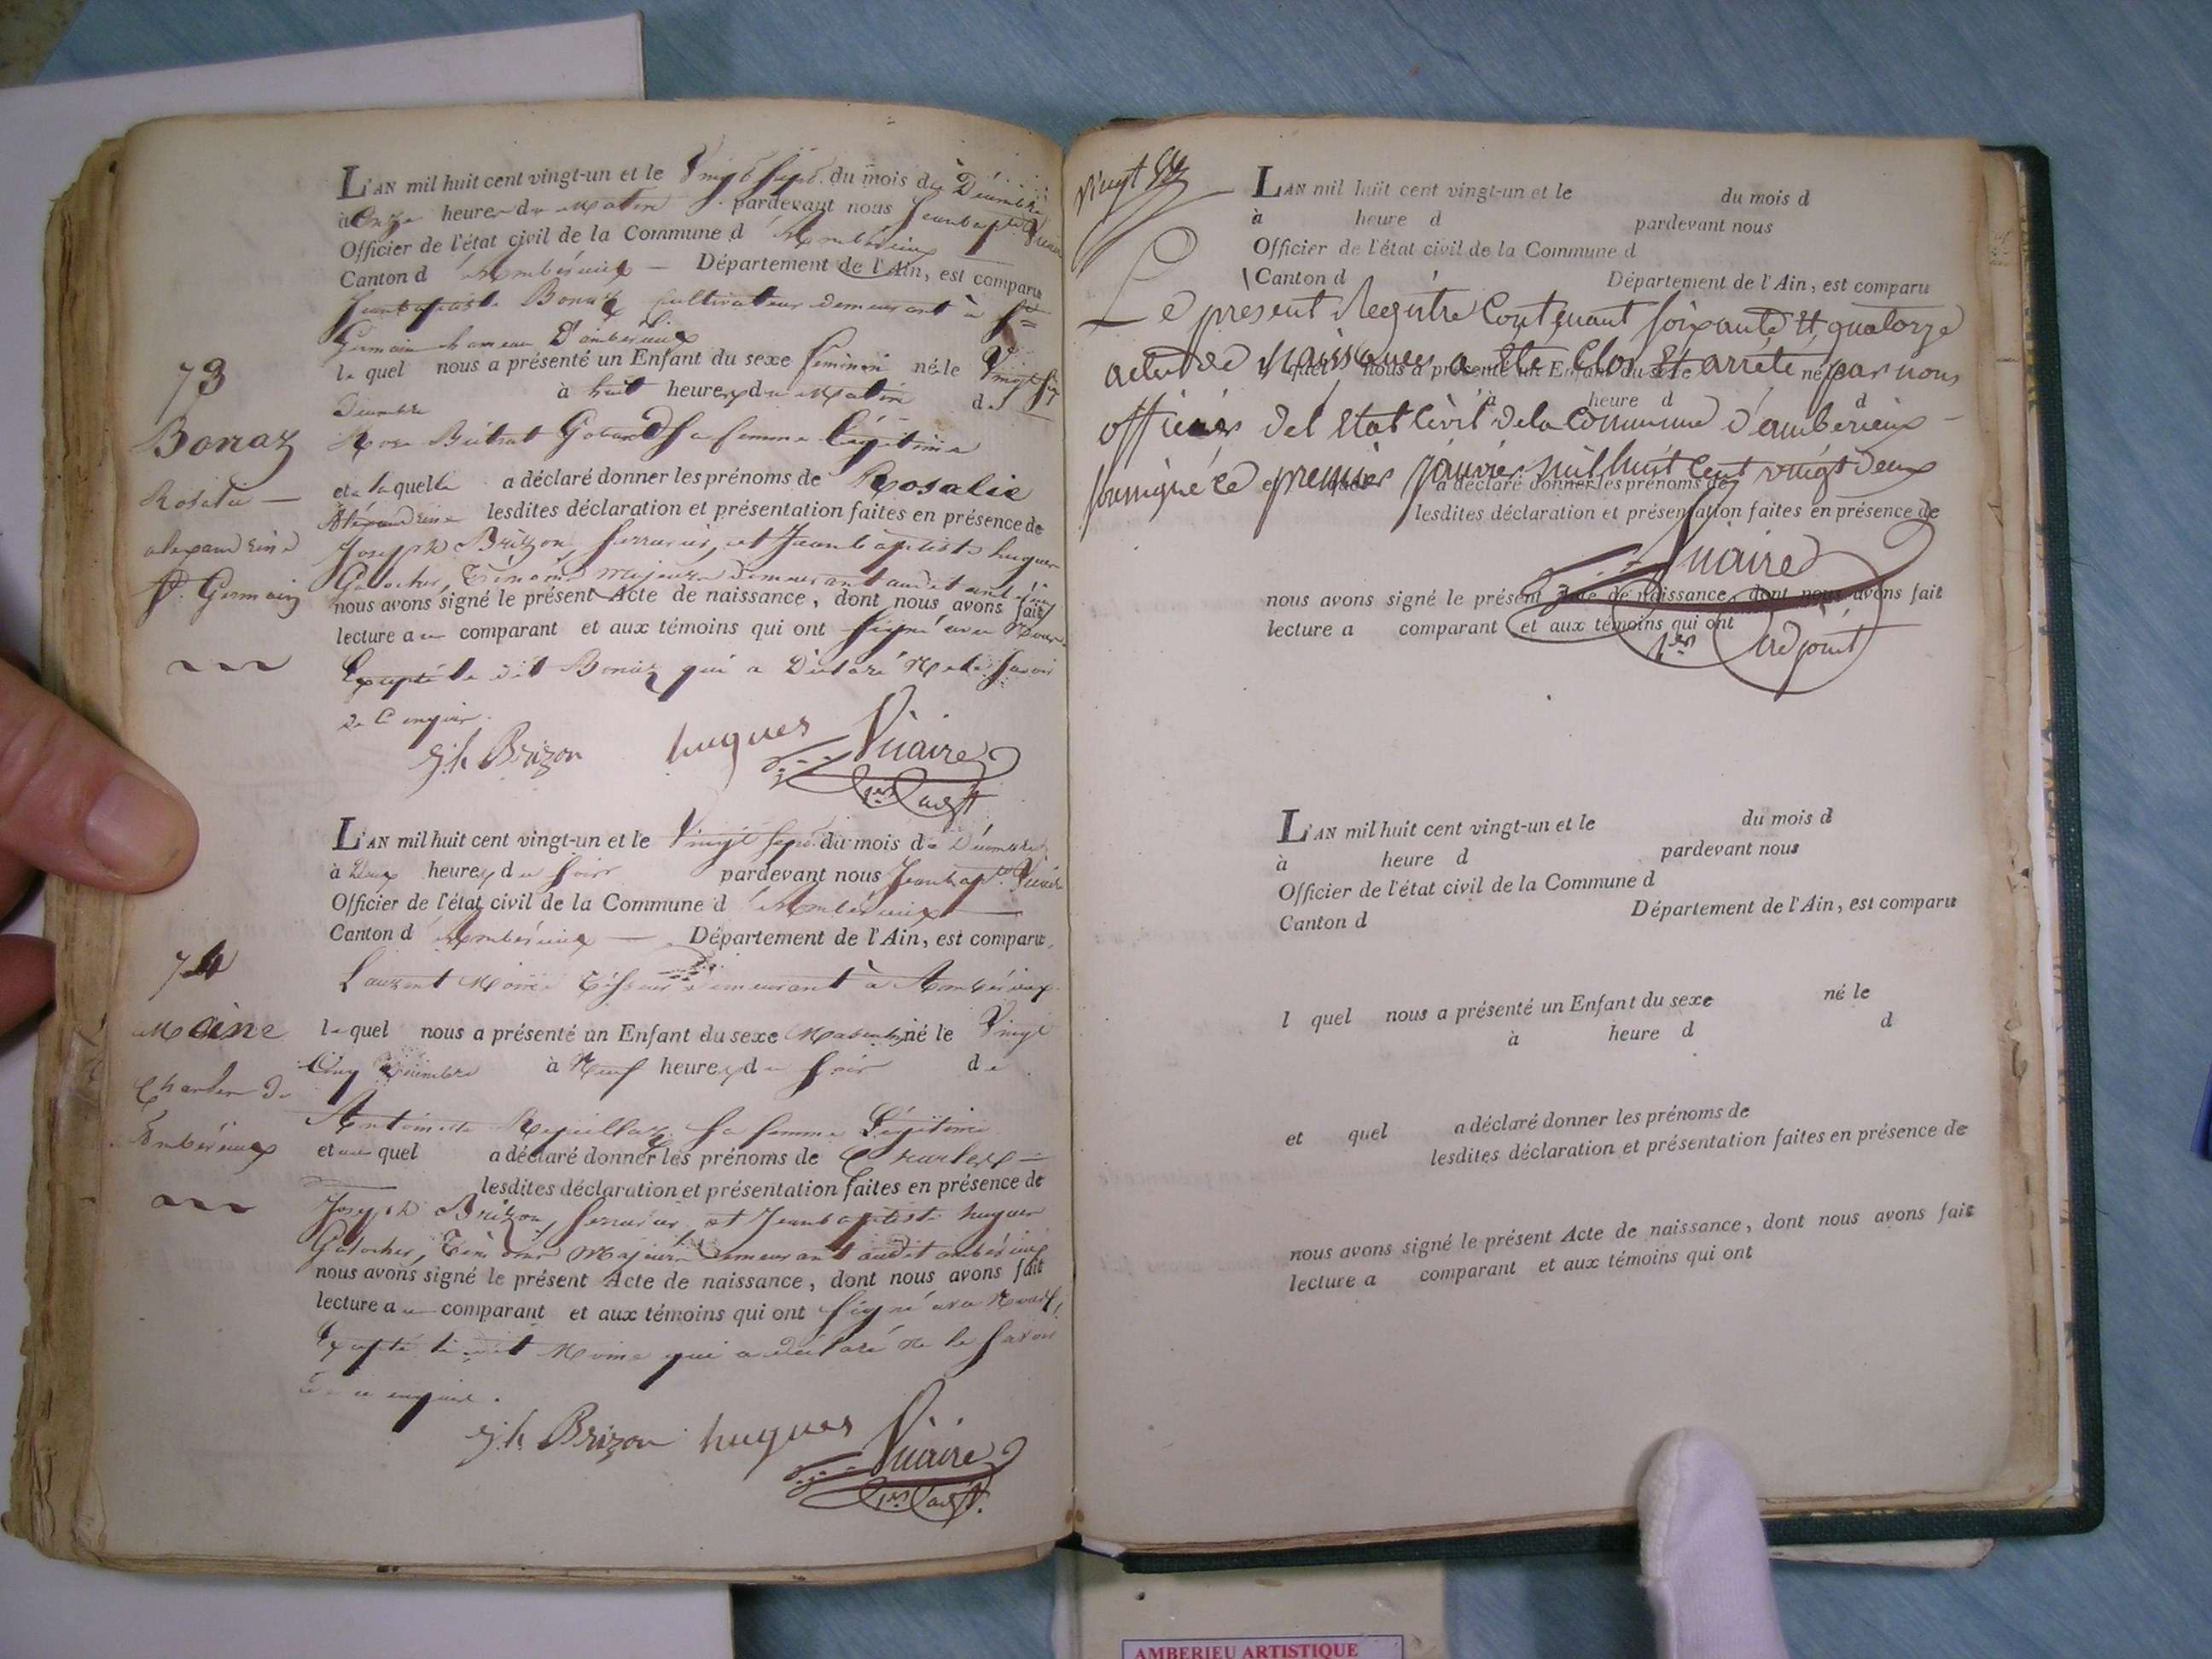 L'AN mil huit cent vingt-un et le Vingt Sept du mois de Décembre
à Onze heures du Matin pardevant nous Jeanbaptte Vuaire
Officier de l'état civil de la Commune d'Ambérieux
Canton d'Ambérieux — Département de l'Ain, est comparu
Jeanbaptiste Bonaz Cultivateur demeurant à St
Germain hameau d'ambérieux
73
le quel nous a présenté un Enfant du sexe féminin né le Vingt Sept
Décembre à huit heures du Matin de
Bonaz
Rose Béatrat sa femme légitime
Rosalie —
et a laquelle a déclaré donner les prénoms de Rosalie
Alexandrine lesdites déclaration et présentation faites en présence de
alexandrine
Joseph Brizon, Serrurier, et Jeanbaptiste hugues
St. Germain
Galocher, Témoins Majeurs Demeurant audit ambérieux
nous avons signé le présent Acte de naissance, dont nous avons fait
lecture au comparant et aux témoins qui ont Signé avec Nous
Excepté le dit Bonaz qui a Déclaré Ne le Savoir
de ce enquis.
Jh Brizon hugues Vuaire
1er adjt
L'AN mil huit cent vingt-un et le Vingt Sept du mois de Décembre
à Deux heures du Soir pardevant nous Jeanbapte Vuaire
Officier de l'état civil de la Commune d'Ambérieux —
Canton d'Ambérieux — Département de l'Ain, est comparu
74
Laurent Moine Tisseur Demeurant à Ambérieux
Moine
le quel nous a présenté un Enfant du sexe Masculin né le Vingt
Cinq Décembre à Neuf heures du Soir de
Charles De
Antoinette sa femme Légitime
Ambérieux
et au quel a déclaré donner les prénoms de Charles —
lesdites déclaration et présentation faites en présence de
Joseph Brizon, Serrurier, et Jeanbaptiste hugues
Galocher, Témoins Majeurs Demeurant audit ambérieux
nous avons signé le présent Acte de naissance, dont nous avons fait
lecture au comparant et aux témoins qui ont Signé avec Nous,
Excepté le dit Moine qui a déclaré ne le Savoir
De ce enquis.
Jh Brizon hugues Vuaire
1er adjt.
vingt
L'AN mil huit cent vingt-un et le du mois d
à heure d pardevant nous
Officier de l'état civil de la Commune d
Canton d Département de l'Ain, est comparu
Le present Registre Contenant soixante et quatorze
actes de Naissances a été Clos et arrêté par nous
l quel nous a présenté un Enfant du sexe né le
à heure d d
officier del Etat Civil dela Commune d'ambérieux —
soussigné ce premier janvier mil huit cent vingt deux
et quel a déclaré donner les prénoms de
lesdites déclaration et présentation faites en présence de
Vuaire
nous avons signé le présent Acte de naissance, dont nous avons fait
lecture a comparant et aux témoins qui ont
1er adjoint
L'AN mil huit cent vingt-un et le du mois d
à heure d pardevant nous
Officier de l'état civil de la Commune d
Canton d Département de l'Ain, est comparu
l quel nous a présenté un Enfant du sexe né le
à heure d d
et quel a déclaré donner les prénoms de
lesdites déclaration et présentation faites en présence de
nous avons signé le présent Acte de naissance, dont nous avons fait
lecture a comparant et aux témoins qui ont
AMBERIEU ARTISTIQUE